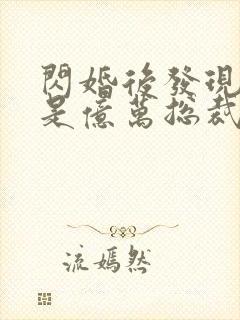 閃婚後發現
是億萬總裁
流嫣然